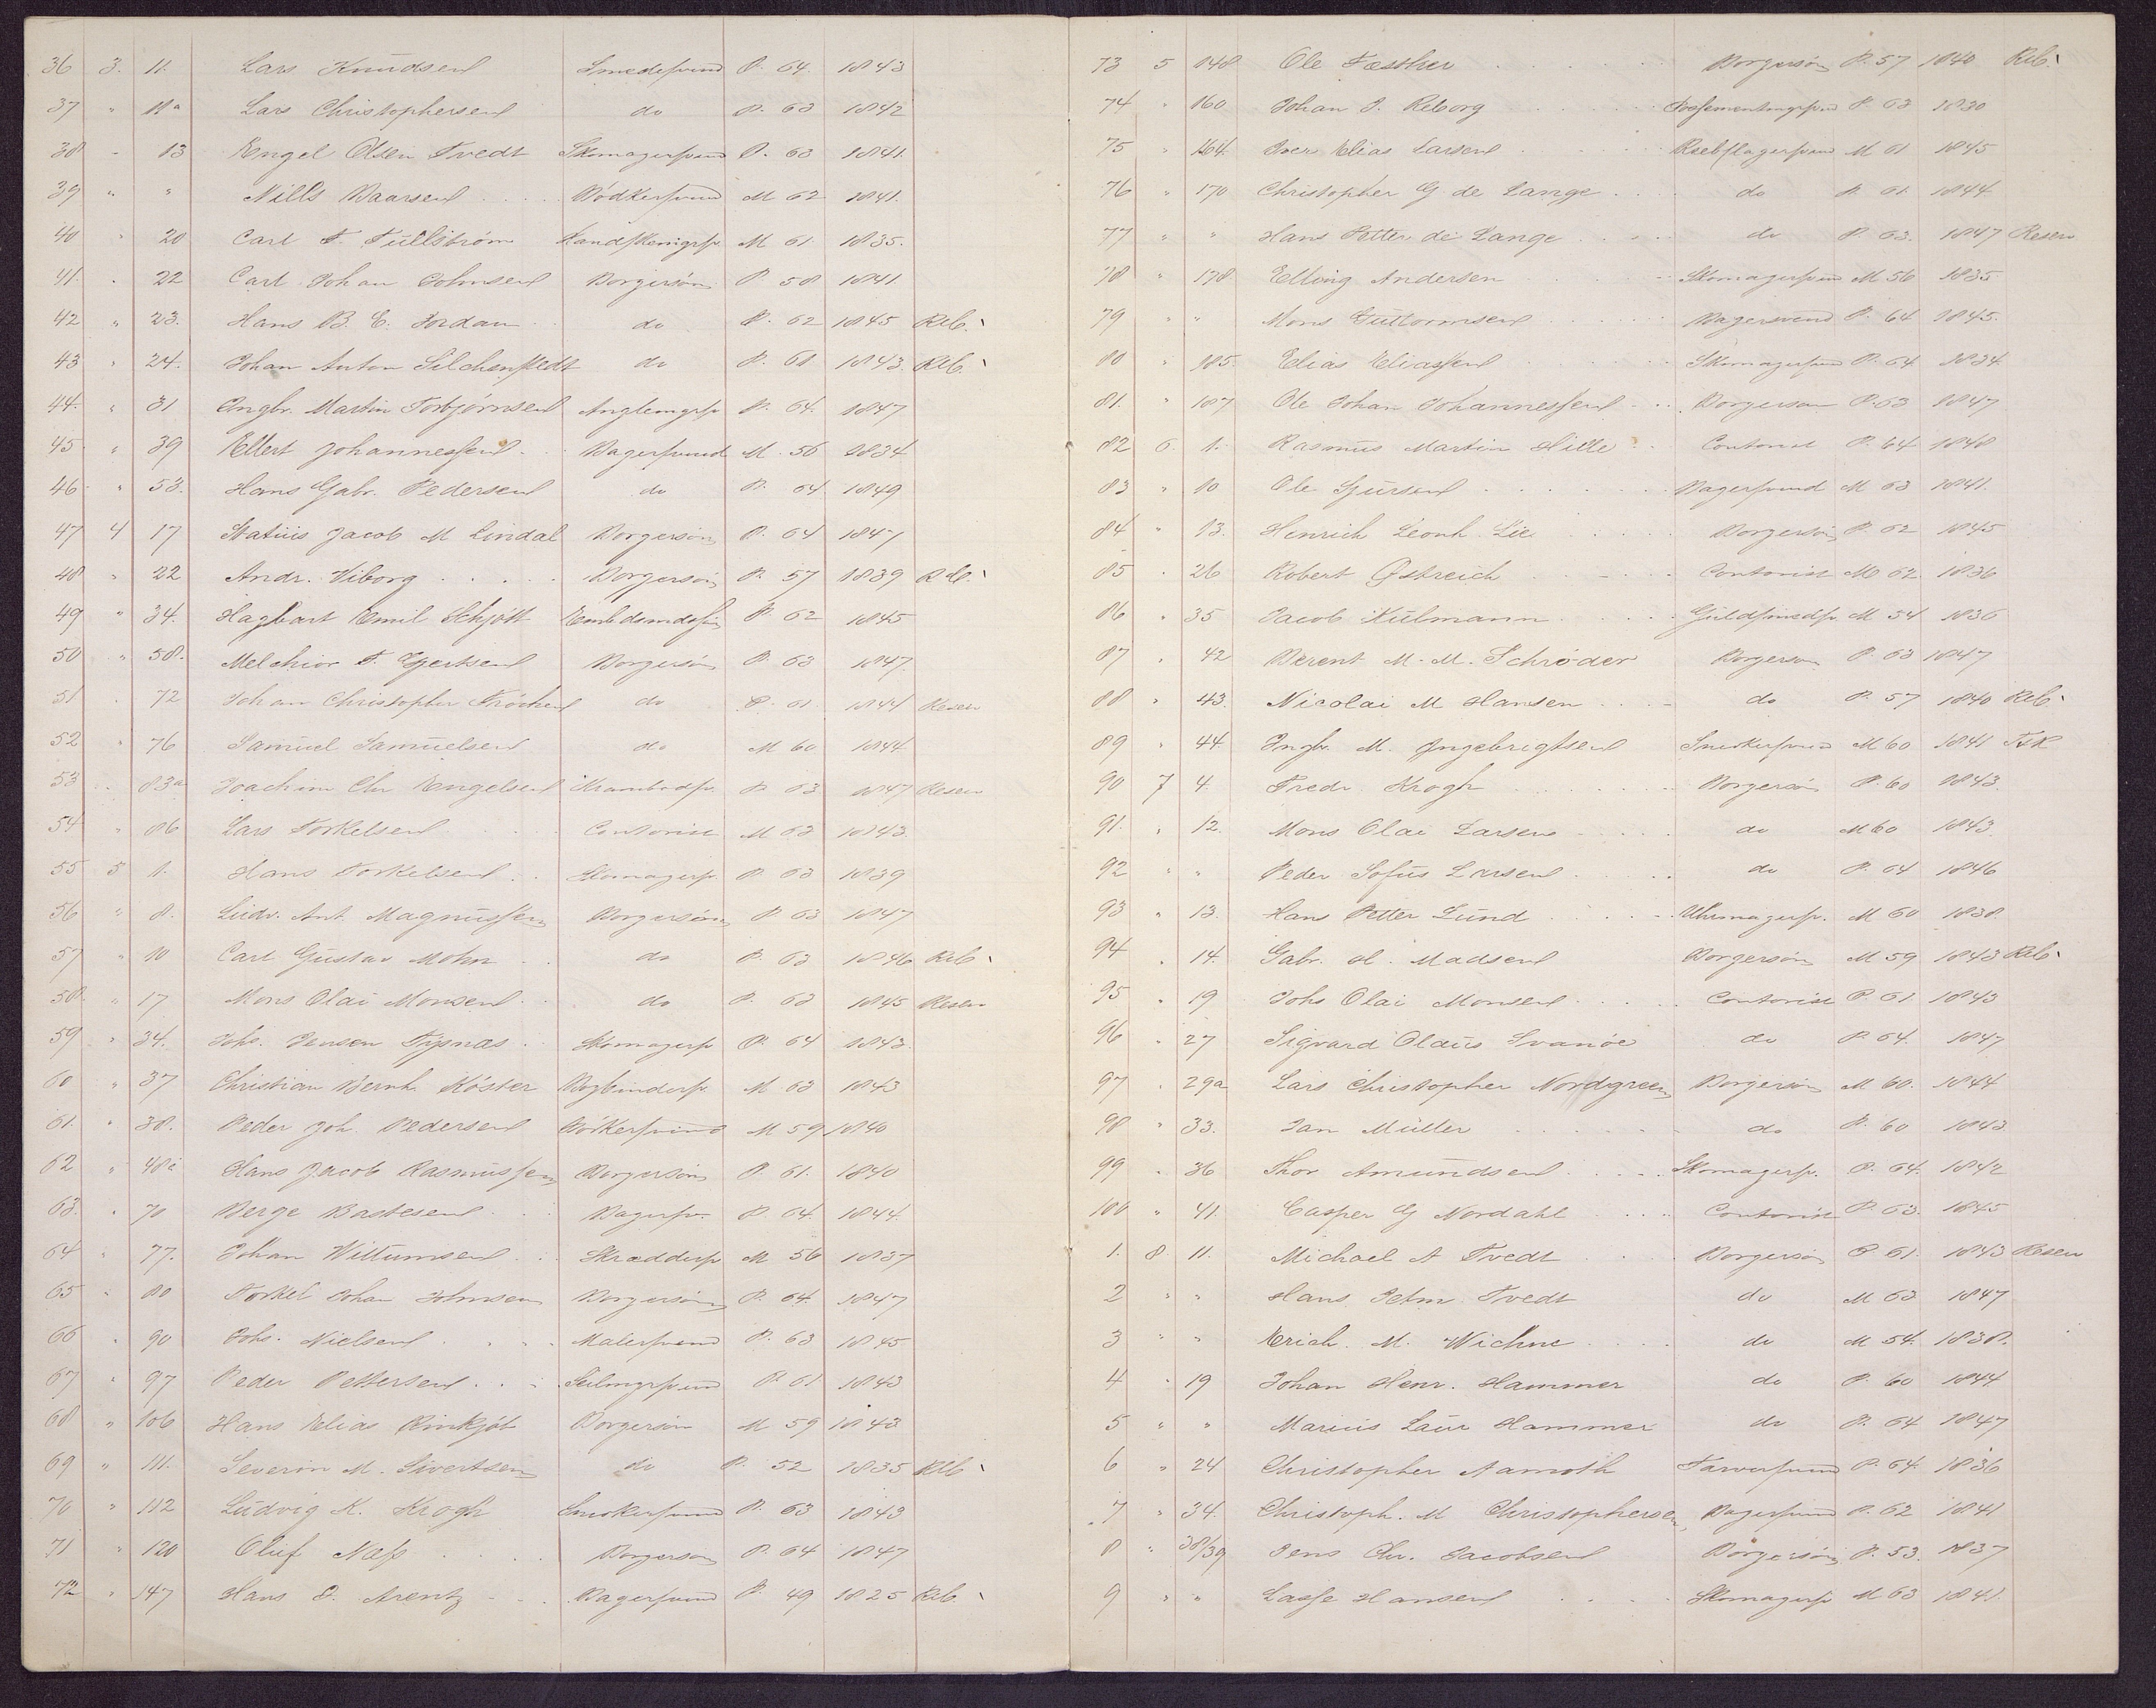 36 3. 11. Lars Knudsen Smedesvend P. 64. 1843
37 " 11a Lars Christophersen do P. 63 1842
38 - 13 Engel Olsen Tvedt Skomagersvend P. 63 1841.
39 " " Nills Baarsen Bödkersvend M 62 1841.
40 " 20 Carl F. Tullström M 61. 1835.
41. " 22 Carl Johan Johnsen Borgersön P. 58 1841.
42 " 23. Hans B. C. Jordan do P. 62 1845 Reb.
43 " 24. Johan Anton do P. 61 1843. Reb.
44. " 31 Engbr. Martin Torbjörnsen P. 64. 1847
45 " 39 Ellert Johannessen Bagersvend M. 56 1834
46 " 53. Hans Gabr. Pedersen do P. 64 1849
47 4 17 Statius Jacob M Lindal Borgersön P. 64 1847
48 " 22 Andr. Viborg Borgersön P. 57 1839 Reb.
49 " 34. Hagbart Emil Schjött Embdsmdssön P. 62 1845
50 " 58. Melchior T. Gjertsen Borgersön P. 63 1847.
51 . 72 Johan Christopher do P. 61 1844 Reserv
52 . 76 Samuel Samuelsen do M 60 1844
53 . 83a Joachim Chr Engelsen Krambodsv. P. 63 1847 Reserv
54 " 86 Lars Torkelsen Contorist M 63 1843.
55 5 1. Hans Torkelsen Skomagersv. P. 63 1839
56 " 8. Ludv. Ant. Magnussen Borgersön P. 63 1847
57 " 10 Carl Gustav Mohn do P. 63 1846 Reb.
58. " 17 Mons Olai Monsen do P. 63 1845 Reserv
59 " 34. Johs. Jensen Tysnæs Skomagersv P. 64 1843.
60 " 37 Christian Bernh. Köster Bogbindersv. M 63 1843
61. " 38. Peder Joh. Pedersen Bödkersvend M 59 1840
62 " 48c Hans Jacob Rasmussen Borgersön P. 61. 1840
63. " 70 Berge Bastesen Bagersv. P. 64. 1844.
64 " 77. Johan Wittumsen Skræddersv M 56 1837
65 " 80 Torkel Johan Johnsen Borgersön P. 64. 1847
66 " 90 Johs. Nielsen Malersvend P. 63 1845
67 " 97 Peder Pettersen P. 61 1843
68 " 106 Hans Elias Rinkjöb Borgersön M 59 1843
69 " 111. Severin M. Sivertsen do P. 52 1835 Reb.
70 " 112 Ludvig K. Krogh Snedkersvend P. 63 1843
71 " 120 Oluf Næss Borgersön P. 64 1847
72 " 147 Hans D. Arentz Bagersvend P. 49 1825 Reb.
73 5 148 Ole Fæster Borgersön P. 57 1840 Reb.
74 " 160 Johan P. Reborg P. 63 1830
75 " 164. Iver Elias Larsen Rebslagersvend M 61 1845
76 " 170 Christopher G. de Lange do P. 61. 1844.
77 " " Hans Petter de Lange do P. 63. 1847 Reserv
78 " 178 Elling Andersen Skomagersvend M 56 1835
79 " " Mons Guttormsen Bagersvend P. 64 1845.
80 " 185. Elias Eliassen Skomagersvend P. 64 1834.
81. " 187 Ole Johan Johannessen Borgersön P. 63 1847
82 6. 1. Rasmus Martin Hille Contorist P. 64 1848
83 " 10 Ole Sjursen Bagersvend M 63 1841.
84 " 13. Henrich Leonh. Lie Borgersön P. 62 1845
85 . 26 Robert Østreich Contorist M 62 1836
86 " 35 Jacob Kulmann Guldsmedsv. M 54 1836
87 " 42 Berent M. M. Schröder Borgersön P. 63 1847
88 " 43. Nicolai M Hansen do P. 57 1840 Reb.
89 " 44 Ingbr. M. Ingebrigtsen Snedkersvend M 60 1841
90 7 4. Fredr. Krogh Borgersön P. 60 1843.
91. " 12. Mons Olai Larsen do M 60 1843.
92 " " Peder Sofus Larsen do P. 64 1846
93 " 13. Hans Petter Lund Uhrmagersv. M 60 1838.
94 " 14. Gabr. H. Madsen Borgersön M 59 1843 Reb.
95 " 19 Johs Olai Monsen Contorist P. 61. 1843
96 " 27 Sigvard Olaus Svanöe do P. 64. 1847
97 . 29a Lars Christopher Nordgreen Borgersön M 60. 1844
98 " 33. Jan Müller do P. 60 1843
99 " 36 Thor Amundsen Skomagersv. P. 64. 1842
100 " 41. Casper G Nordahl Contorist P. 63. 1845
1. 8. 11. Michael A Tvedt Borgersön P. 61. 1843 Reserv
2 " " Hans Tvedt do M 63 1847
3 " " Erich. M. Wichne do M 54. 1838.
4 " 19 Johan Henr. Hammer do P. 60 1844
5 " " Marius Laur Hammer do P. 64 1847
6 " 24 Christopher Aamoth Farversvend P. 64. 1836
7 " 34. Christoph. M Christophersen Bagersvend P. 62 1841
8 " 38/39 Jens Chr. Jacobsen Borgersön P. 53. 1837
9 " " Lasse Hansen Skomagersv M 63 1841.